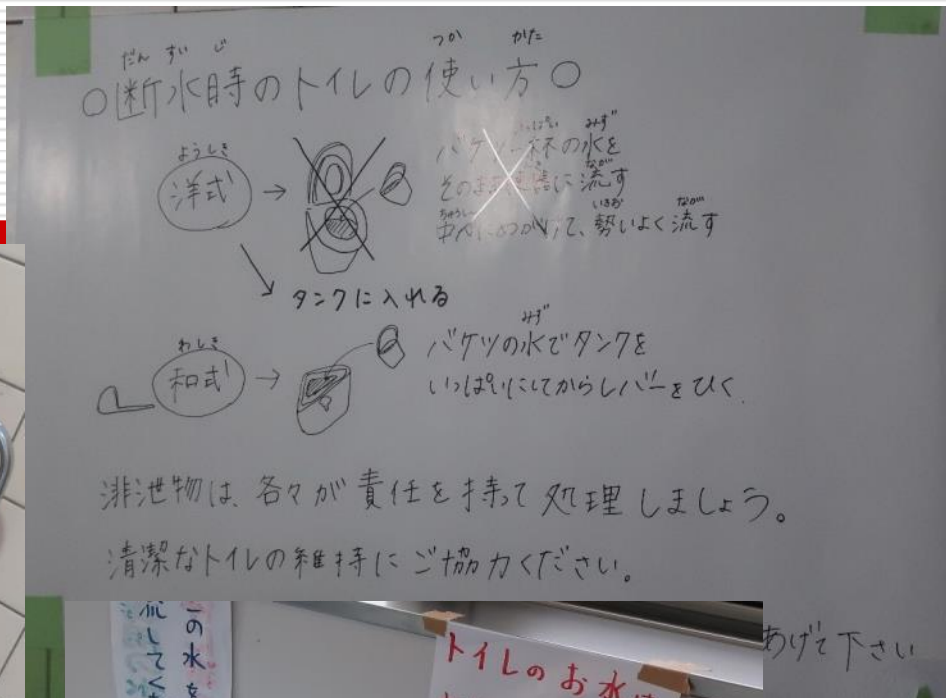 だんすいじ つか かた
○断水時のトイレの使い方○
ようしき
洋式
いっぱい みず
バケツ一杯の水を
なが
そのまま便器に流す
ちゅうしん いきお なが
中心にぶつけて、勢いよく流す
タンクに入れる
わしき
和式
みず
バケツの水でタンクを
いっぱいにしてからレバーをひく
排泄物は、各々が責任を持って処理しましょう。
清潔なトイレの維持にご協力ください。
あげて下さい
の水を
流してく
トイレのお水は